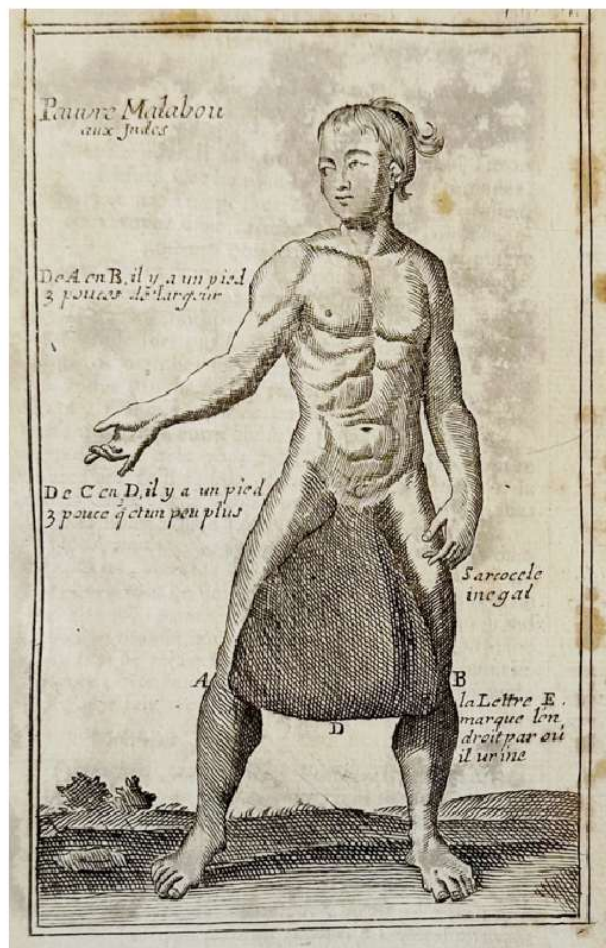 Pauvre Malabou
aux Indes
De A en B, il y a un pied
3 pouces de largeur
De C en D, il y a un pied
3 pouce qetun peu plus
C
Sarcocele
inegal
A
B
la Lettre E.
marque l'en
droit par où
il urine
D